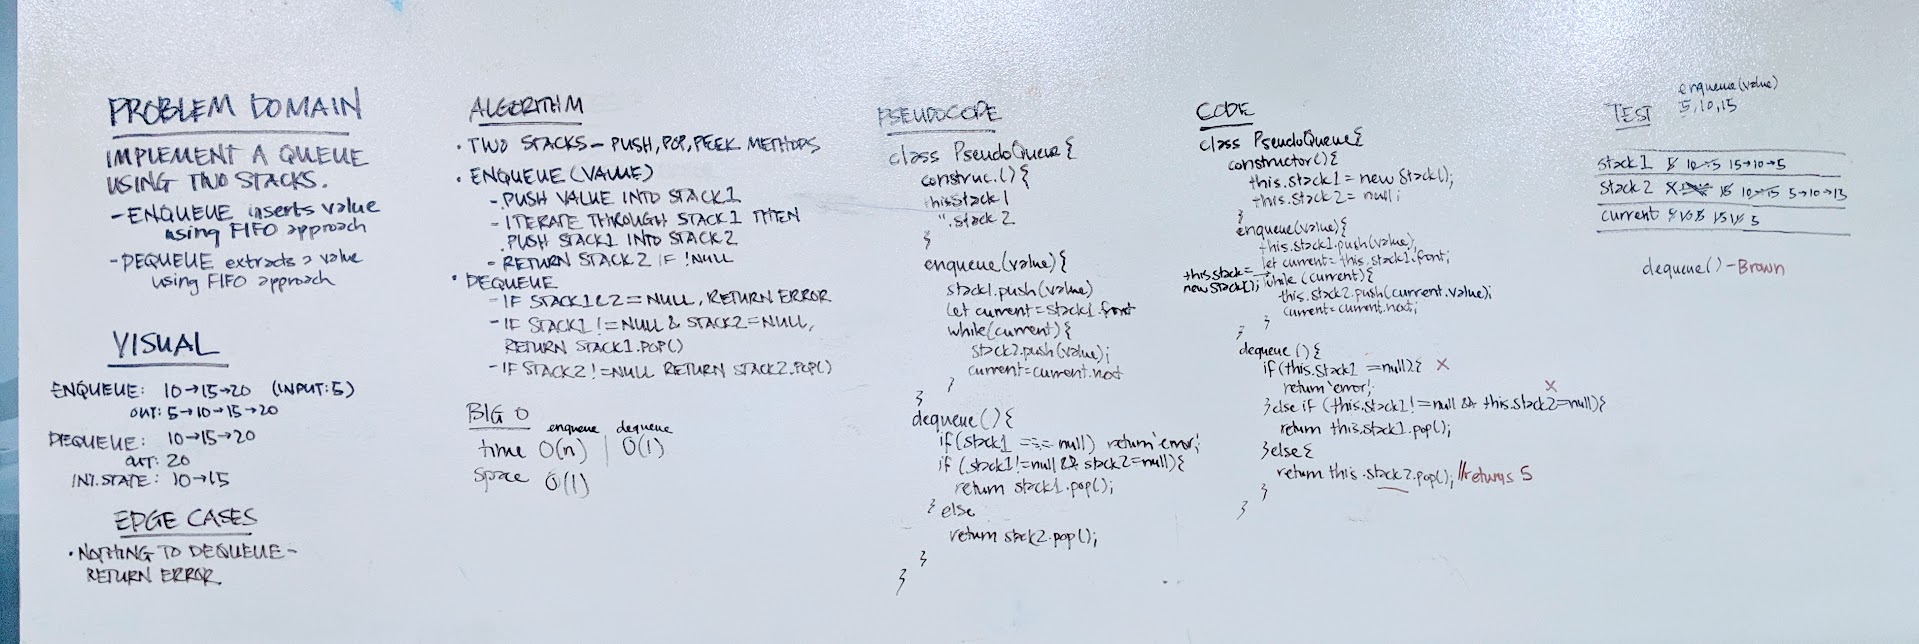 PROBLEM DOMAIN
IMPLEMENT A QUEUE
USING TWO STACKS.
- ENQUEUE inserts value
using FIFO approach
- DEQUEUE extracts a value
using FIFO approach
VISUAL
ENQUEUE: 10→15→20 (INPUT:5)
OUT: 5→10→15→20
DEQUEUE: 10→15→20
OUT: 20
INT. STATE: 10→15
EDGE CASES
• NOTHING TO DEQUEUE -
RETURN ERROR
ALGORITHM
• TWO STACKS - PUSH, POP, PEEK METHODS
• ENQUEUE (VALUE)
- PUSH VALUE INTO STACK1
- ITERATE THROUGH STACK1 THEN
PUSH STACK1 INTO STACK2
- RETURN STACK2 IF !NULL
• DEQUEUE
- IF STACK1&2 = NULL, RETURN ERROR
- IF STACK1 != NULL & STACK2 = NULL,
RETURN STACK1.POP()
- IF STACK2 != NULL RETURN STACK2.POP()
BIG O
enqueue | dequeue
time O(n) | O(1)
space O(1)
PSEUDOCODE
class PseudoQueue {
construc.() {
this stack1
".stack2
}
enqueue(value) {
stack1.push(value)
let current = stack1.front
while(current) {
stack2.push(value);
current = current.next
}
}
dequeue() {
if(stack1 === null) return 'error';
if (stack1 != null && stack2 = null) {
return stack1.pop();
} else
return stack2.pop();
}
}
CODE
class PseudoQueue {
constructor() {
this.stack1 = new Stack();
this.stack2 = null;
}
enqueue(value) {
this.stack1.push(value)
let current = this.stack1.front;
this.stack = new Stack(); while (current) {
this.stack2.push(current.value);
current = current.next;
}
}
dequeue() {
if(this.stack1 == null) { X
return 'error';
X
} else if (this.stack1 != null && this.stack2 = null) {
return this.stack1.pop();
} else {
return this.stack2.pop(); //returns 5
}
}
TEST
enqueue(value)
5, 10, 15
stack 1 5 10→5 15→10→5
stack 2 15 10→15 5→10→15
current 5
dequeue() - Brown